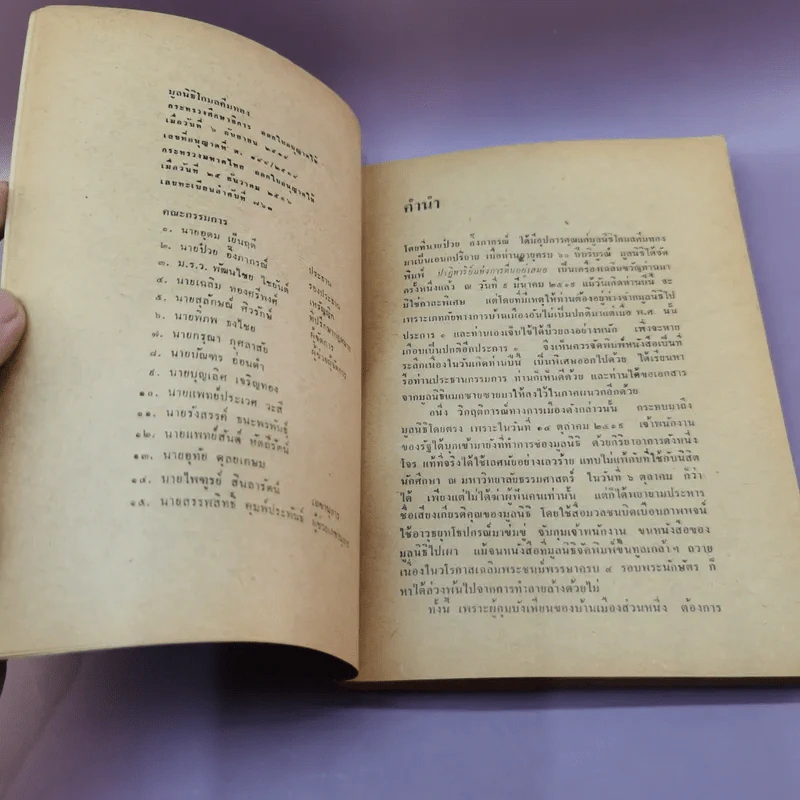 มูลนิธิโกมลคีมทอง
กระทรวงศึกษาธิการ ออกใบอนุญาตให้
เมื่อวันที่ ๖ กันยายน
เลขที่อนุญาตที่ ต.
กระทรวงมหาดไทย ออกใบอนุญาตให้
เมื่อวันที่ ๒๕ ธันวาคม
เลขทะเบียนลำดับที่ ๗๖๓
คณะกรรมการ
๑. นายอุดม เย็นฤดี ประธาน
๒. นายป๋วย อึ๊งภากรณ์ รองประธาน
๓. ม.ร.ว. พัฒนไชย ไชยันต์ เหรัญญิก
๔. นายเฉลิม ทองศรีพงศ์
๕. นายสุลักษณ์ ศิวรักษ์
๖. นายพิภพ ธงไชย ผู้จัดการ
๗. นายกรุณา กุศลาสัย ผู้ช่วยผู้จัดการ
๘. นายบัณฑร อ่อนดำ
๙. นายบุญเลิศ เจริญทอง
๑๐. นายแพทย์ประเวศ วะสี
๑๑. นายรังสรรค์ ธนะพรพันธุ์
๑๒. นายแพทย์สันต์ หัตถีรัตน์
๑๓. นายอุทัย ดุลยเกษม
๑๔. นายไพฑูรย์ สินลารัตน์ เลขานุการ
๑๕. นายสรรพสิทธิ์ คุมพ์ประพันธ์ ผู้ช่วยเลขานุการ
คำนำ
โดยที่นายป๋วย อึ๊งภากรณ์ ได้มีอุปการคุณแก่มูลนิธิโกมลคีมทอง
มาเป็นเอนกปริยาย เมื่อท่านอายุครบ ๖๐ ปีบริบูรณ์ มูลนิธิได้จัด
พิมพ์ เป็นเครื่องเฉลิมขวัญท่านมา
ครั้งหนึ่งแล้ว ณ วันที่ ๙ มีนาคม ๒๕๑๙ แม้วันเกิดท่านปีนี้ จะ
มิใช่วาระพิเศษ แต่โดยที่มีเหตุให้ท่านต้องอยู่ห่างจากมูลนิธิไป
เพราะเภทภัยทางการบ้านเมืองอันไม่เป็นปกติมาแต่เมื่อ พ.ศ. นั้น
ประการ ๑ และท่านเองเจ็บไข้ได้ป่วยลงอย่างหนัก เพิ่งจะหาย
เกือบเป็นปกติอีกประการ ๑ จึงเห็นควรจัดพิมพ์หนังสือเป็นที่
ระลึกเนื่องในวันเกิดท่านปีนี้ เป็นพิเศษออกไปด้วย ได้เรียนหา
รือท่านประธานกรรมการ ท่านก็เห็นดีด้วย และท่านได้ขอเอกสาร
จากมูลนิธิแมกซายซายมาให้ลงไว้ในภาคผนวกอีกด้วย
อนึ่ง วิกฤติการณ์ทางการเมืองดังกล่าวนั้น กระทบมาถึง
มูลนิธิโดยตรง เพราะในวันที่ ๑๔ ตุลาคม ๒๕๑๙ เจ้าพนักงาน
ของรัฐได้บุกเข้ามายังที่ทำการของมูลนิธิ ด้วยกิริยาอาการดังหนึ่ง
โจร แท้ที่จริงได้ใช้เลศนัยอย่างเลวร้าย แทบไม่แพ้กับที่ใช้กับนิสิต
นักศึกษา ณ มหาวิทยาลัยธรรมศาสตร์ ในวันที่ ๖ ตุลาคม ก็ว่า
ได้ เพียงแต่ไม่ได้ฆ่าผู้ฟันคนเท่านั้น แต่ก็ได้พยายามประหาร
ชื่อเสียงเกียรติคุณของมูลนิธิ โดยใช้สื่อมวลชนบิดเบือนภาพพจน์
ใช้อาวุธยุทโธปกรณ์มาข่มขู่ จับกุมเจ้าพนักงาน ขนหนังสือของ
มูลนิธิไปเผา แม้จนหนังสือที่มูลนิธิจัดพิมพ์ขึ้นทูลเกล้าฯ ถวาย
เนื่องในวโรกาสเฉลิมพระชนม์พรรษาครบ ๔ รอบพระนักษัตร ก็
หาได้ล่วงพ้นไปจากการทำลายล้างด้วยไม่
ทั้งนี้ เพราะผู้กุมบังเหียนของบ้านเมืองส่วนหนึ่ง ต้องการ